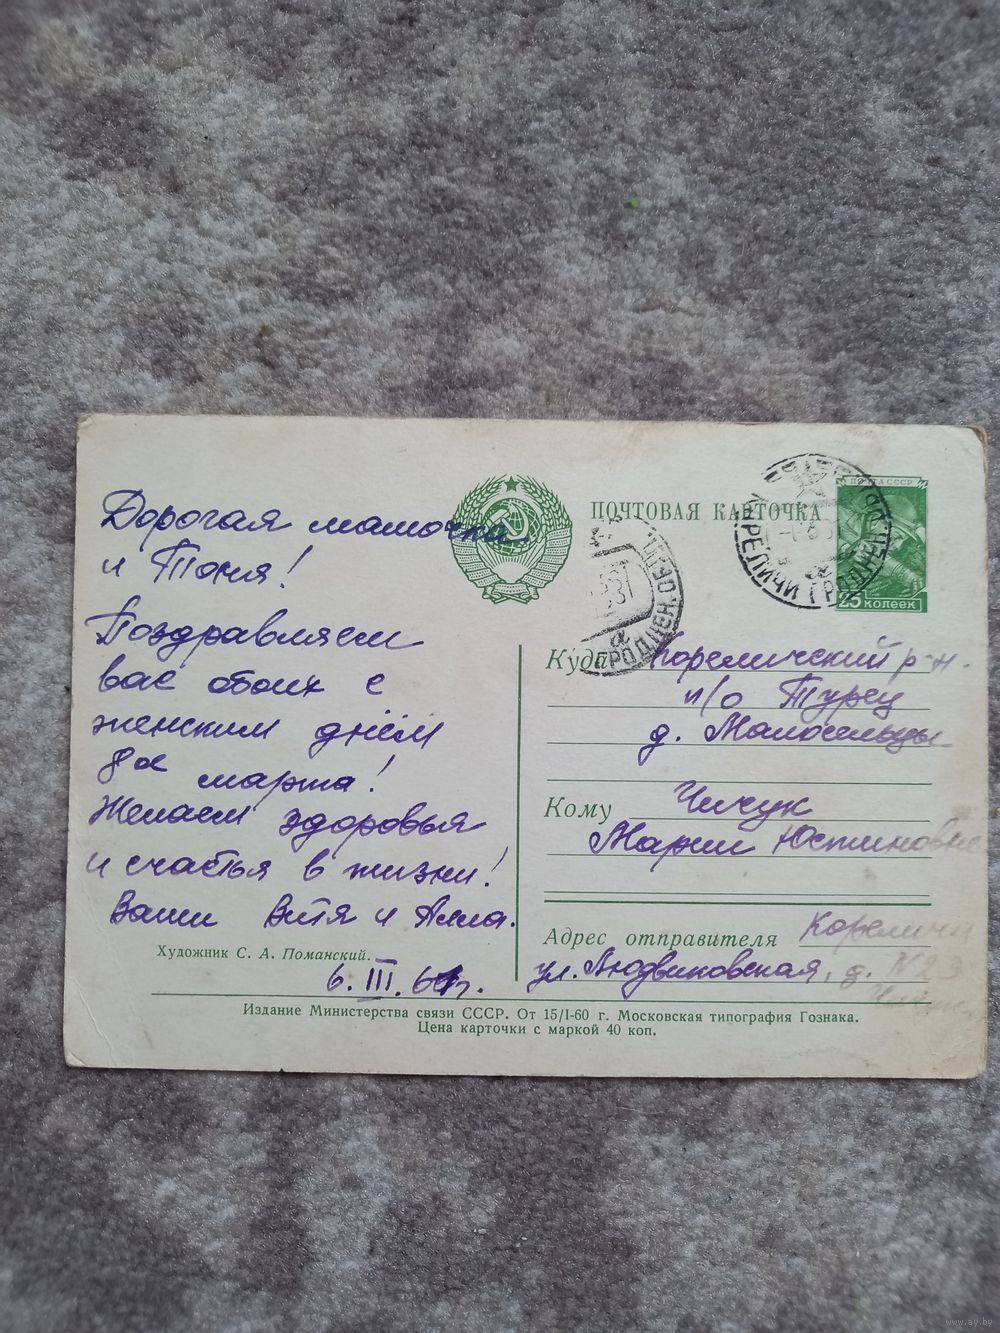 Дорогая мамочка
и Тоня!
Поздравляем
вас обоих с
женским днём
8ое марта!
Желаем здоровья
и счастья в жизни!
Ваши Витя и Алла.
6. III. 61г.
Художник С. А. Поманский.
ПОЧТОВАЯ КАРТОЧКА
ПОЧТА СССР
25 КОПЕЕК
КАРЕЛИЧИ ГРОДНЕН.
ГРОДНЕН. ОБЛ
Куда Кореличский р-н.
п/о Турец
д. Малосельцы
Кому Чичук
Марии Юстиновне
Адрес отправителя Кореличи
ул. Людвиковская, д. №23
Издание Министерства связи СССР. От 15/I-60 г. Московская типография Гознака.
Цена карточки с маркой 40 коп.
www.ay.by